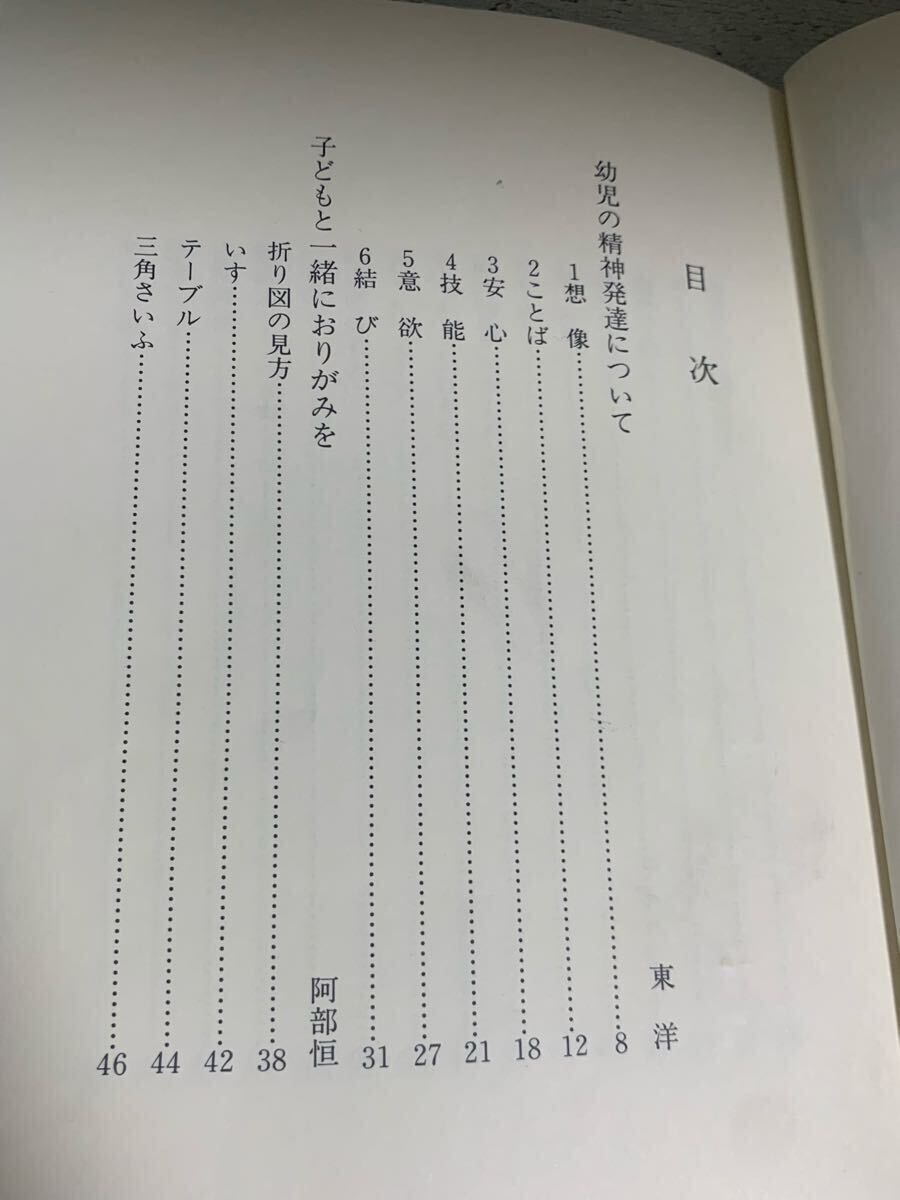 目次
幼児の精神発達について 東洋
1想像……8
2ことば……12
3安心……18
4技能……21
5意欲……27
6結び……31
子どもと一緒におりがみを 阿部恒
折り図の見方……38
いす……42
テーブル……44
三角さいふ……46